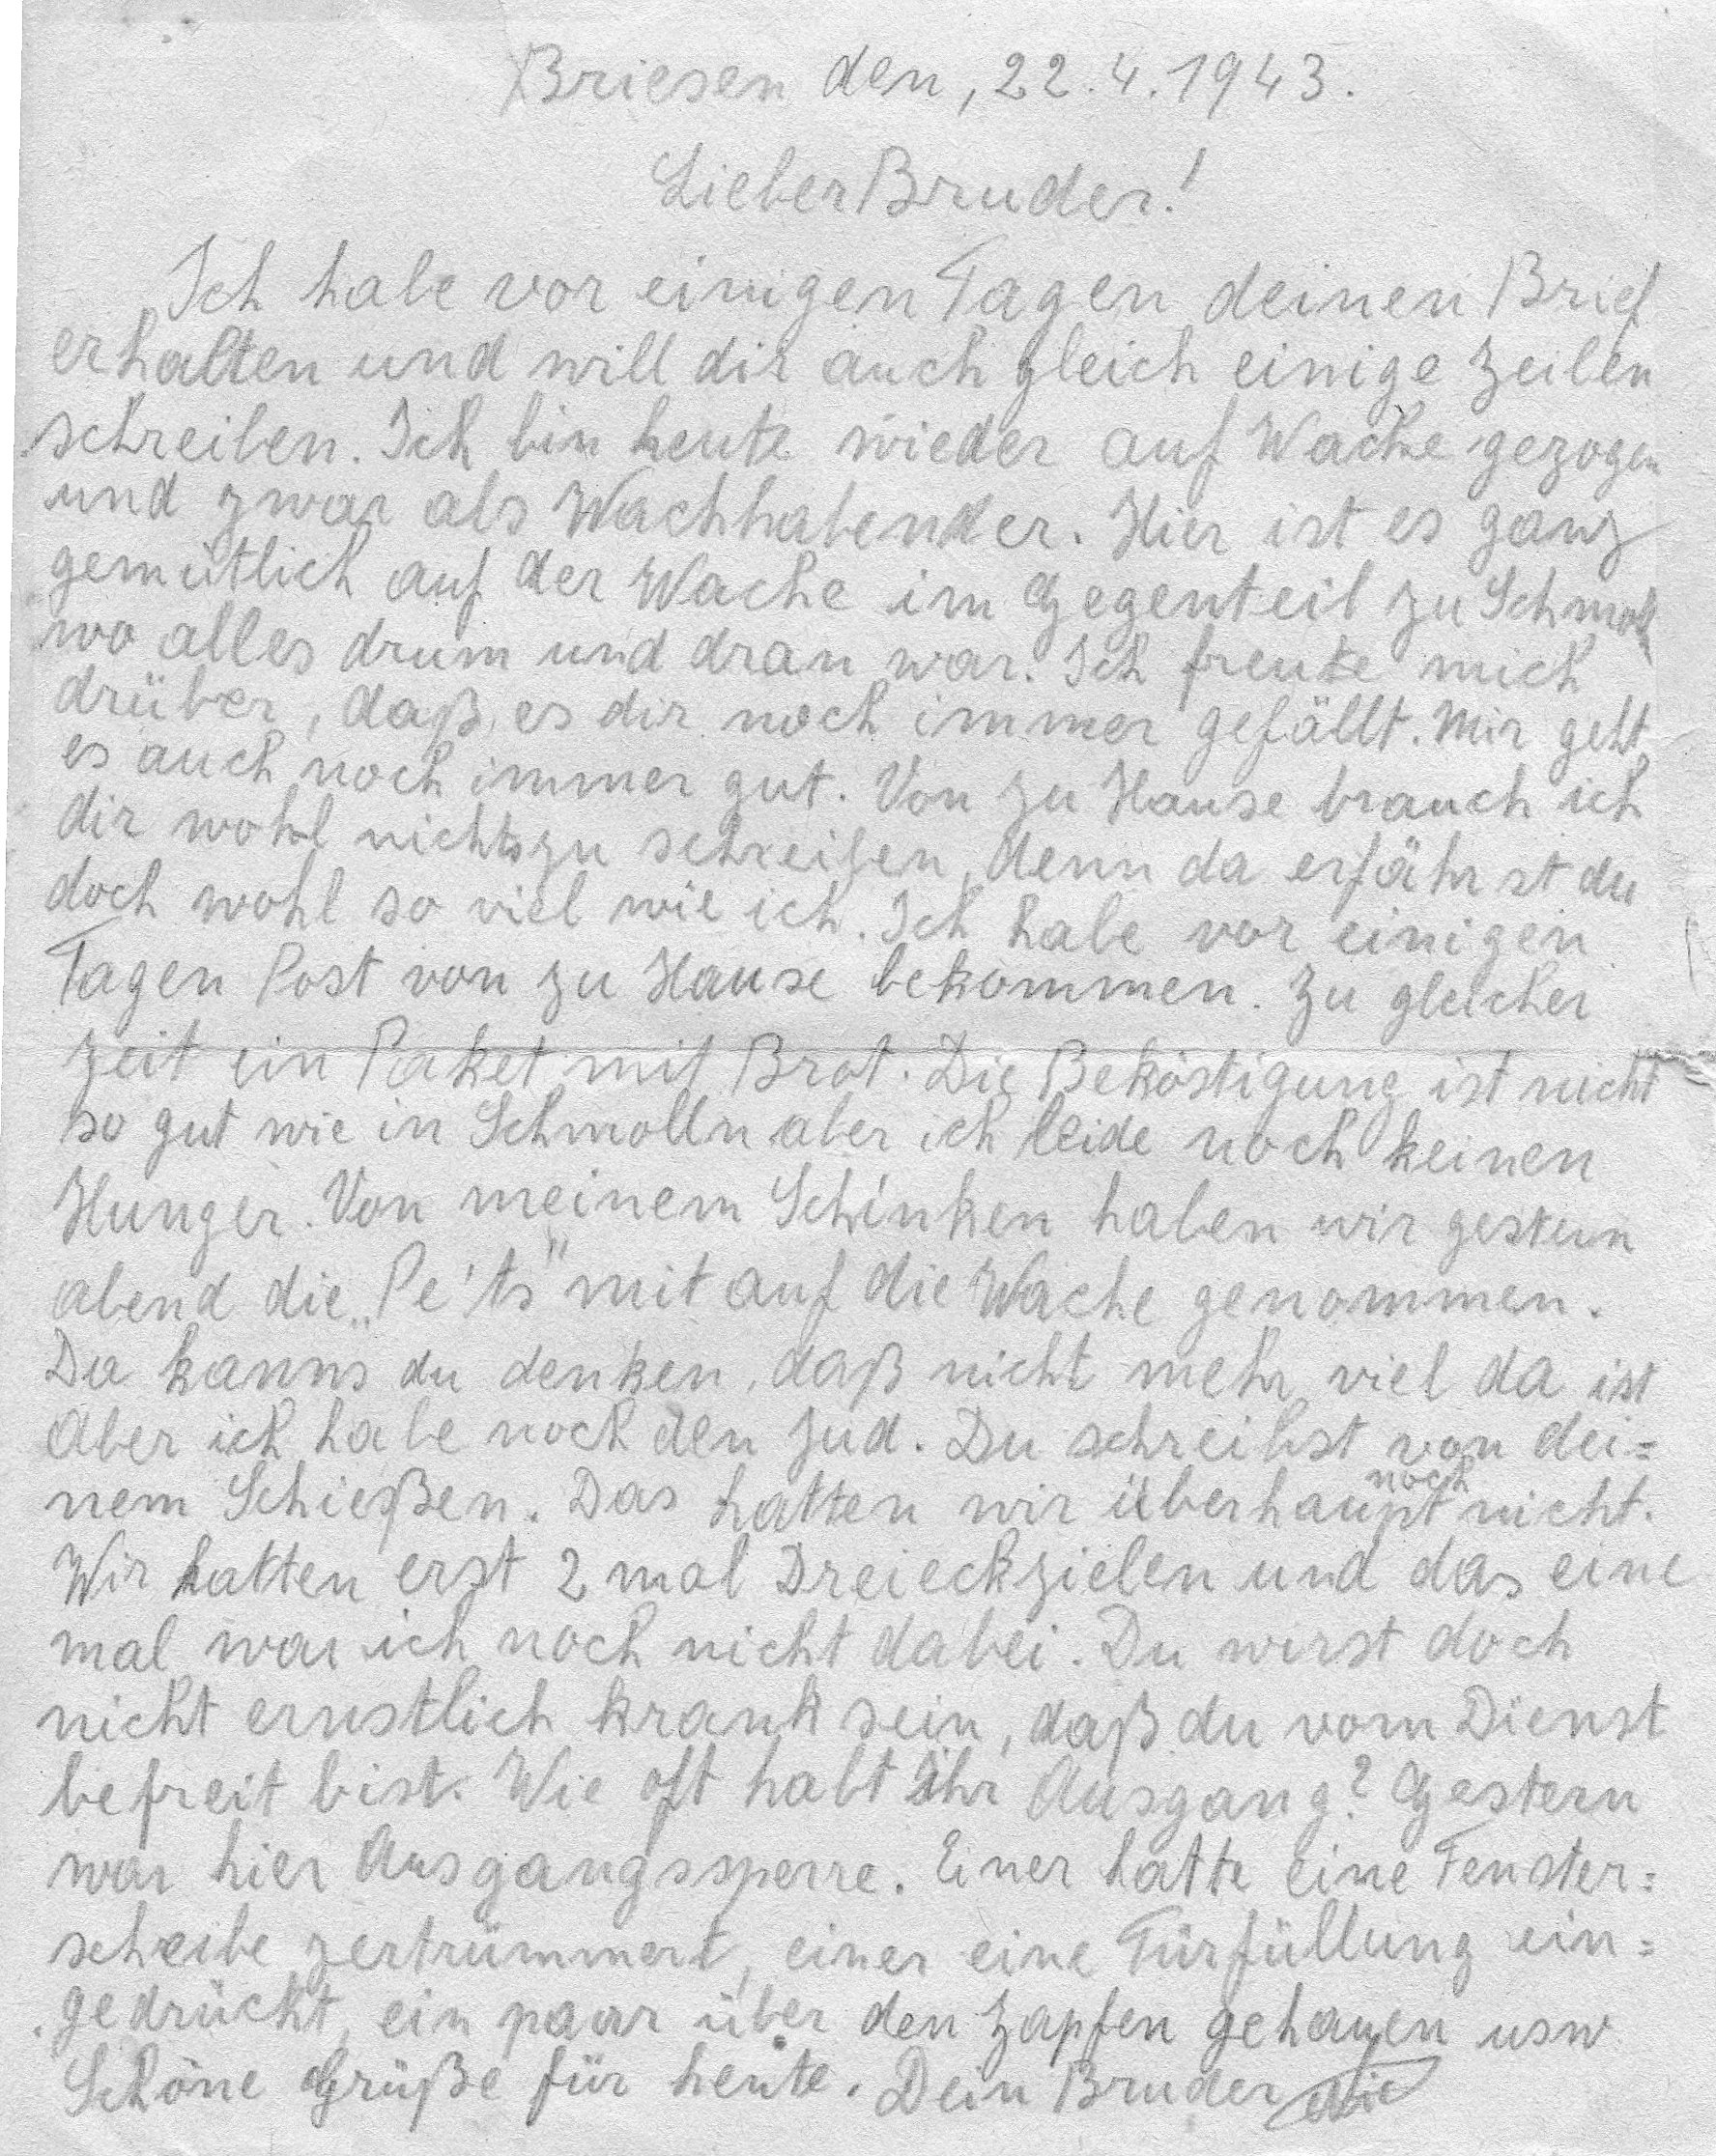 Briesen den, 22.4.1943.
Lieber Bruder!
Ich habe vor einigen Tagen deinen Brief
erhalten und will dir auch gleich einige Zeilen
schreiben. Ich bin heute wieder auf Wache gezogen
und zwar als Wachhabender. Hier ist es ganz
gemütlich auf der Wache im Gegenteil zu Schmolln
wo alles drum und dran war. Ich freute mich
drüber, daß es dir noch immer gefällt. Mir geht
es auch noch immer gut. Von zu Hause brauch ich
dir wohl nichts zu schreiben, denn da erfährst du
doch wohl so viel wie ich. Ich habe vor einigen
Tagen Post von zu Hause bekommen. Zu gleicher
Zeit ein Paket mit Brot. Die Beköstigung ist nicht
so gut wie in Schmolln aber ich leide noch keinen
Hunger. Von meinem Schinken haben wir gestern
abend die „Pe'ts" mit auf die Wache genommen.
Da kanns du denken, daß nicht mehr viel da ist
Aber ich habe noch den Jud. Du schreibst von dei=
nem Schießen. Das hatten wir überhaupt noch nicht.
Wir hatten erst 2 mal Dreieckzielen und das eine
mal war ich noch nicht dabei. Du wirst doch
nicht ernstlich krank sein, daß du vom Dienst
befreit bist. Wie oft habt Ihr Ausgang? Gestern
war hier Ausgangssperre. Einer hatte eine Fenster=
scheibe zertrümmert, einer eine Türfüllung ein=
gedrückt, ein paar über den Zapfen gehauen usw
Schöne Grüße für heute. Dein Bruder